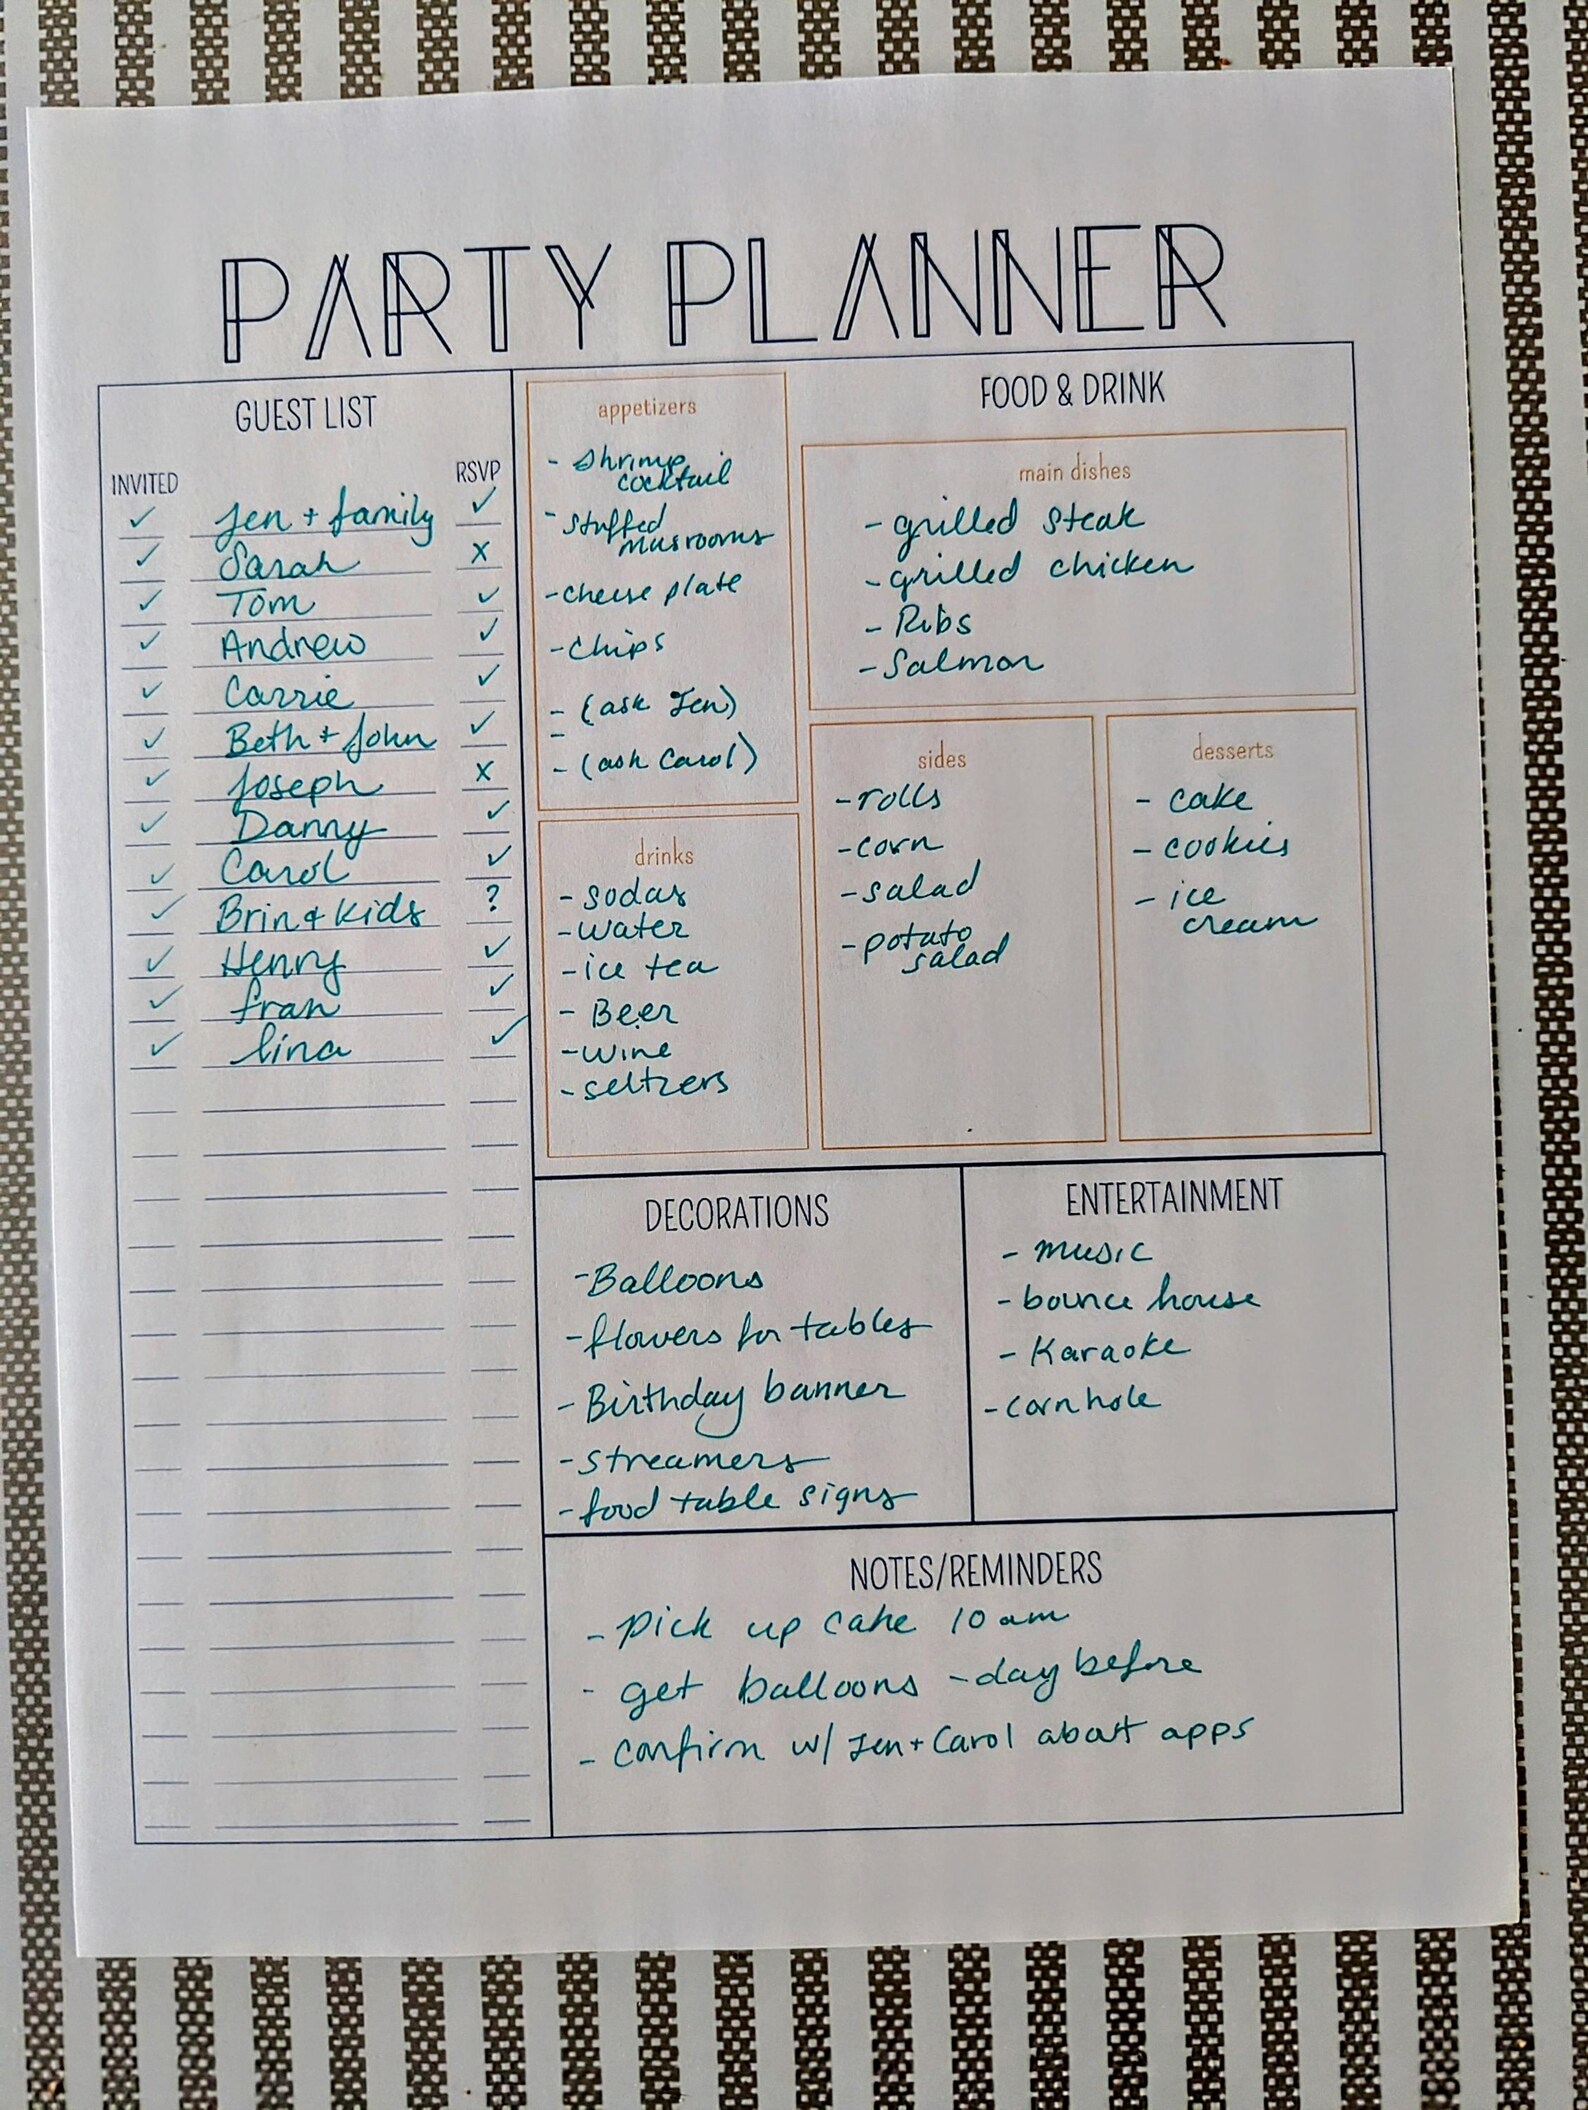 PARTY PLANNER
GUEST LIST
INVITED RSVP
✓ Jen + family ✓
✓ Sarah x
✓ Tom ✓
✓ Andrew ✓
✓ Carrie ✓
✓ Beth + John ✓
✓ Joseph x
✓ Danny ✓
✓ Carol ✓
✓ Brin & kids ?
✓ Henry ✓
✓ Fran ✓
✓ Lina ✓
FOOD & DRINK
appetizers
- shrimp
cocktail
- stuffed
musrooms
- cheese plate
- chips
- (ask Jen)
-
- (ask Carol)
main dishes
- grilled steak
- grilled chicken
- Ribs
- Salmon
drinks
- sodas
- water
- ice tea
- Beer
- wine
- seltzers
sides
- rolls
- corn
- salad
- potato
salad
desserts
- cake
- cookies
- ice
cream
DECORATIONS
- Balloons
- flowers for tables
- Birthday banner
- streamers
- food table signs
ENTERTAINMENT
- music
- bounce house
- Karaoke
- cornhole
NOTES/REMINDERS
- pick up cake 10 am
- get balloons - day before
- confirm w/ Jen + Carol about apps